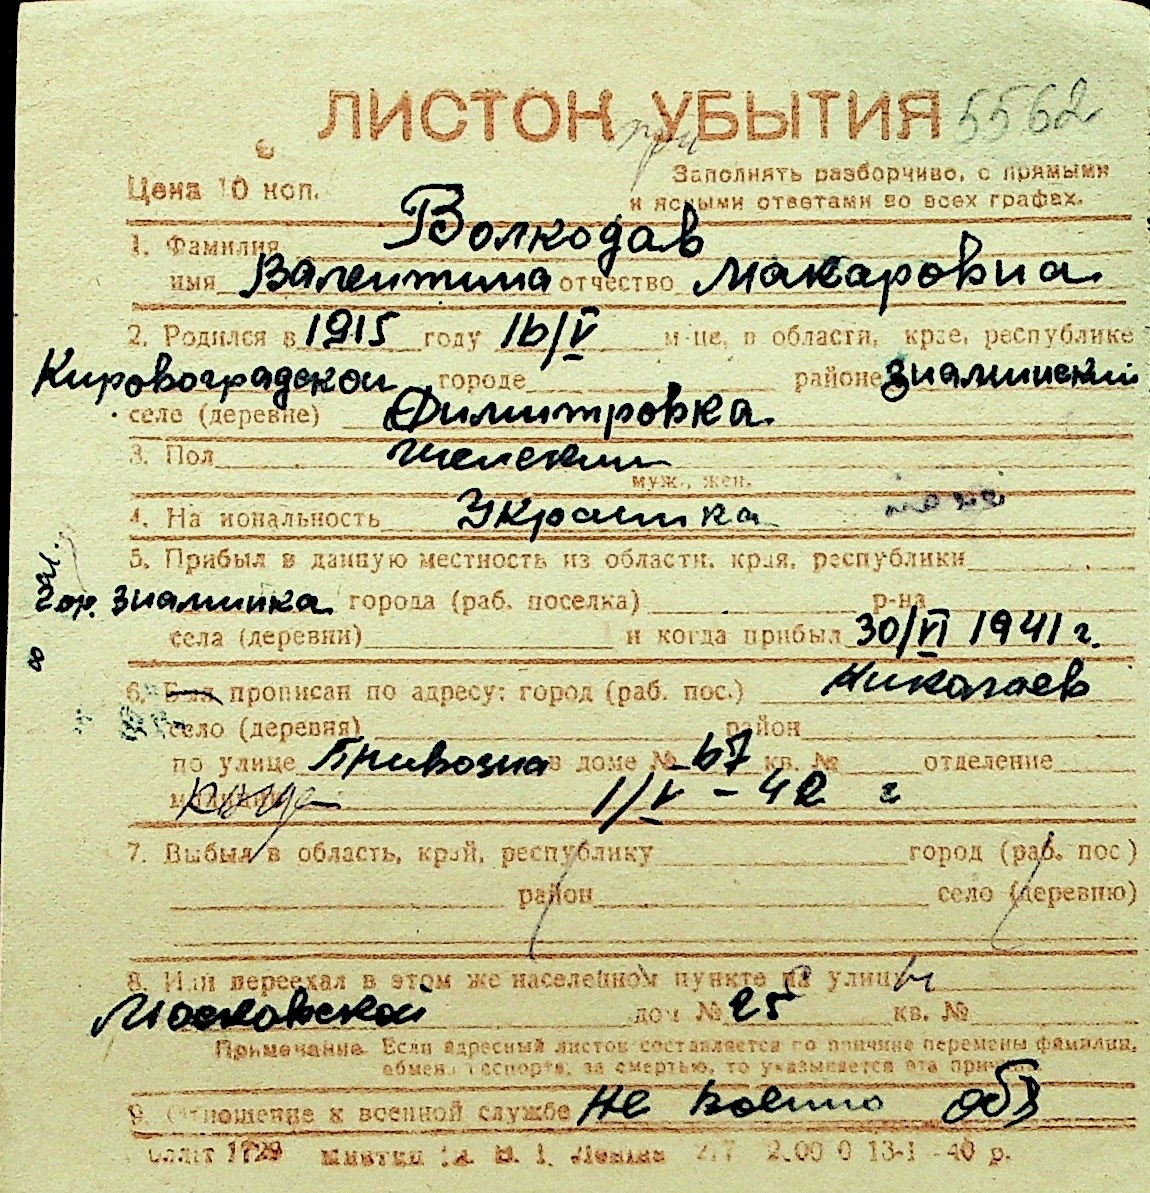 ЛИСТОК УБЫТИЯ 5562
при
Цена 10 коп.
Заполнять разборчиво, с прямыми
и ясными ответами во всех графах.
1. Фамилия Волкодав
имя Валентина отчество Макаровна
2. Родился в 1915 году 16/V м-це, в области, крае, республике
Кировоградской городе районе Знаминский
селе (деревне) Димитровка
3. Пол женский
муж., жен.
4. Национальность Украинка
5. Прибыл в данную местность из области, края, республики
гор. Знаминка города (раб. поселка) р-на
села (деревни) и когда прибыл 30/VI 1941 г.
6. Был прописан по адресу: город (раб. пос.) Николаев
село (деревня) район
по улице Привозна в доме № 67 кв. № отделение
милиции когда 1/V - 42 г
7. Выбыл в область, край, республику город (раб. пос)
район село (деревню)
8. Или переехал в этом же населенном пункте на улицу
Московской дом № 25 кв. №
Примечание. Если адресный листок составляется по причине перемены фамилии,
обмена паспорта, за смертью, то указывается эта причина.
9. Отношение к военной службе Не военно обз